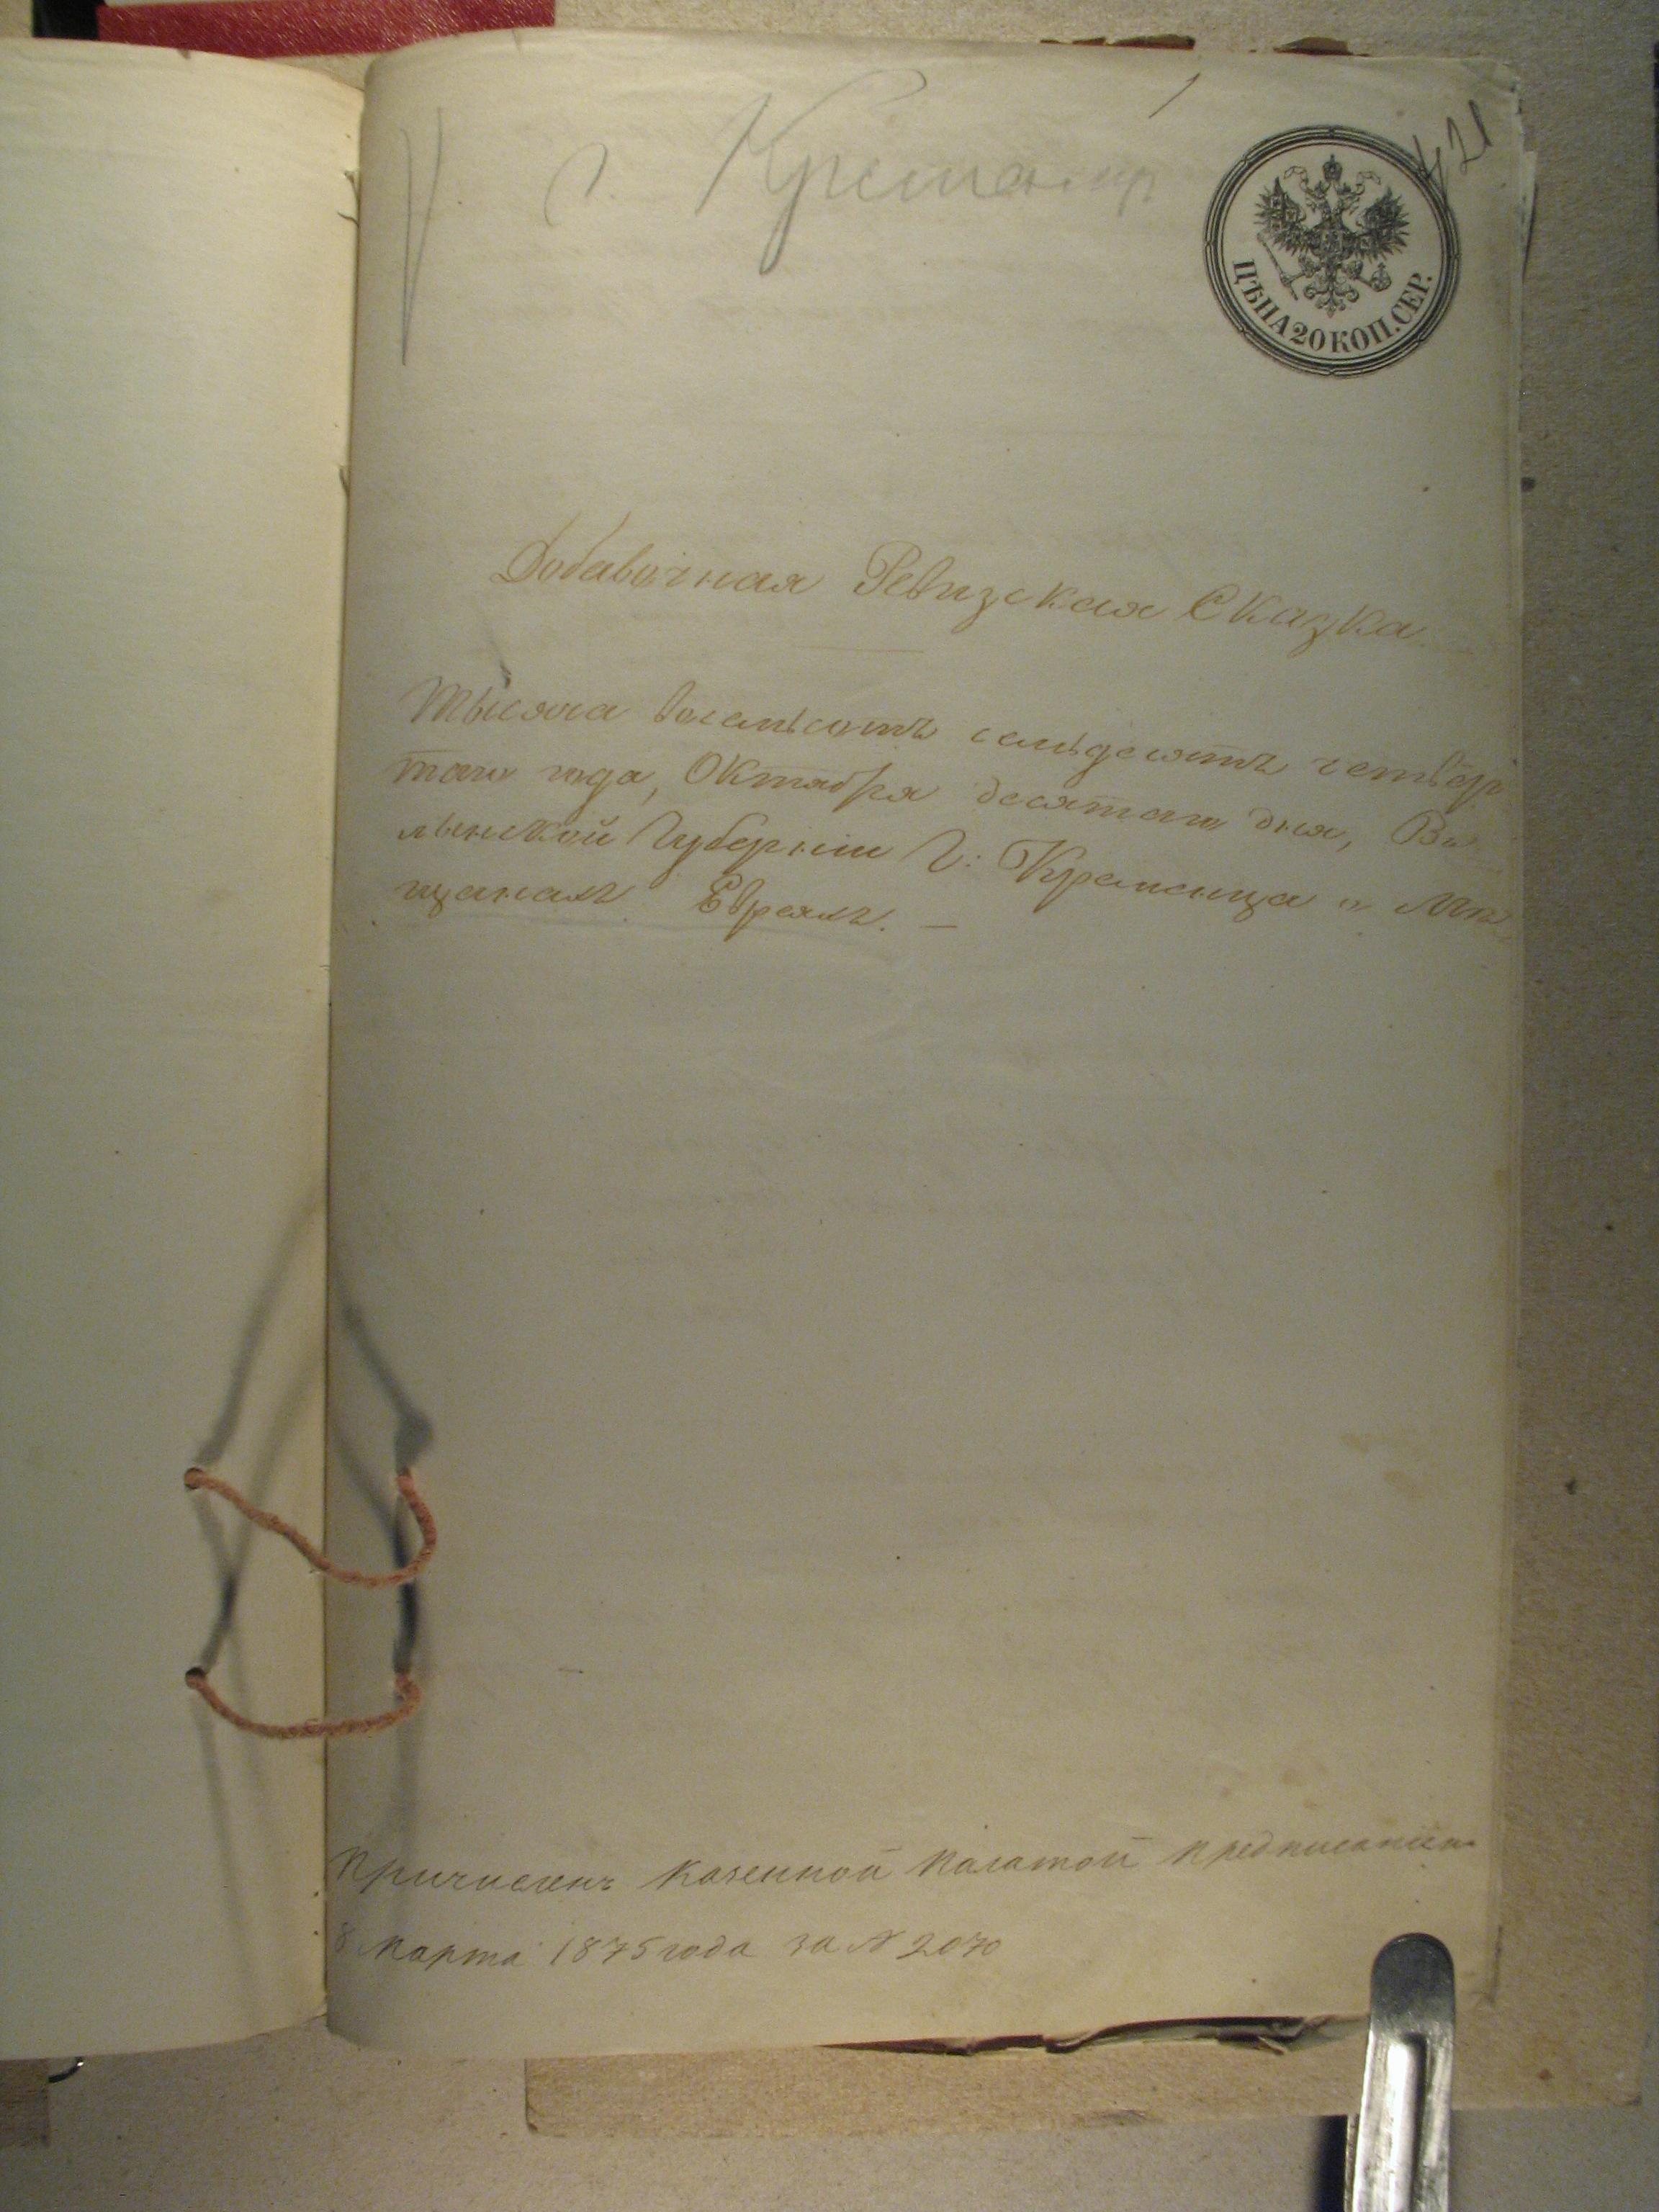 1
421
г. Кременец
ЦѢНА 20 КОП. СЕР.
Добавочная Ревизская Сказка
Тысяча восемьсотъ семьдесятъ четвер
таго года, Октября десятаго дня, Во
лынской Губерніи Г: Кременца о Мѣ
щанахъ Евреяхъ. —
Причисленъ Казенной Палатой предписаніемъ
8 Марта 1875 года за N 2070